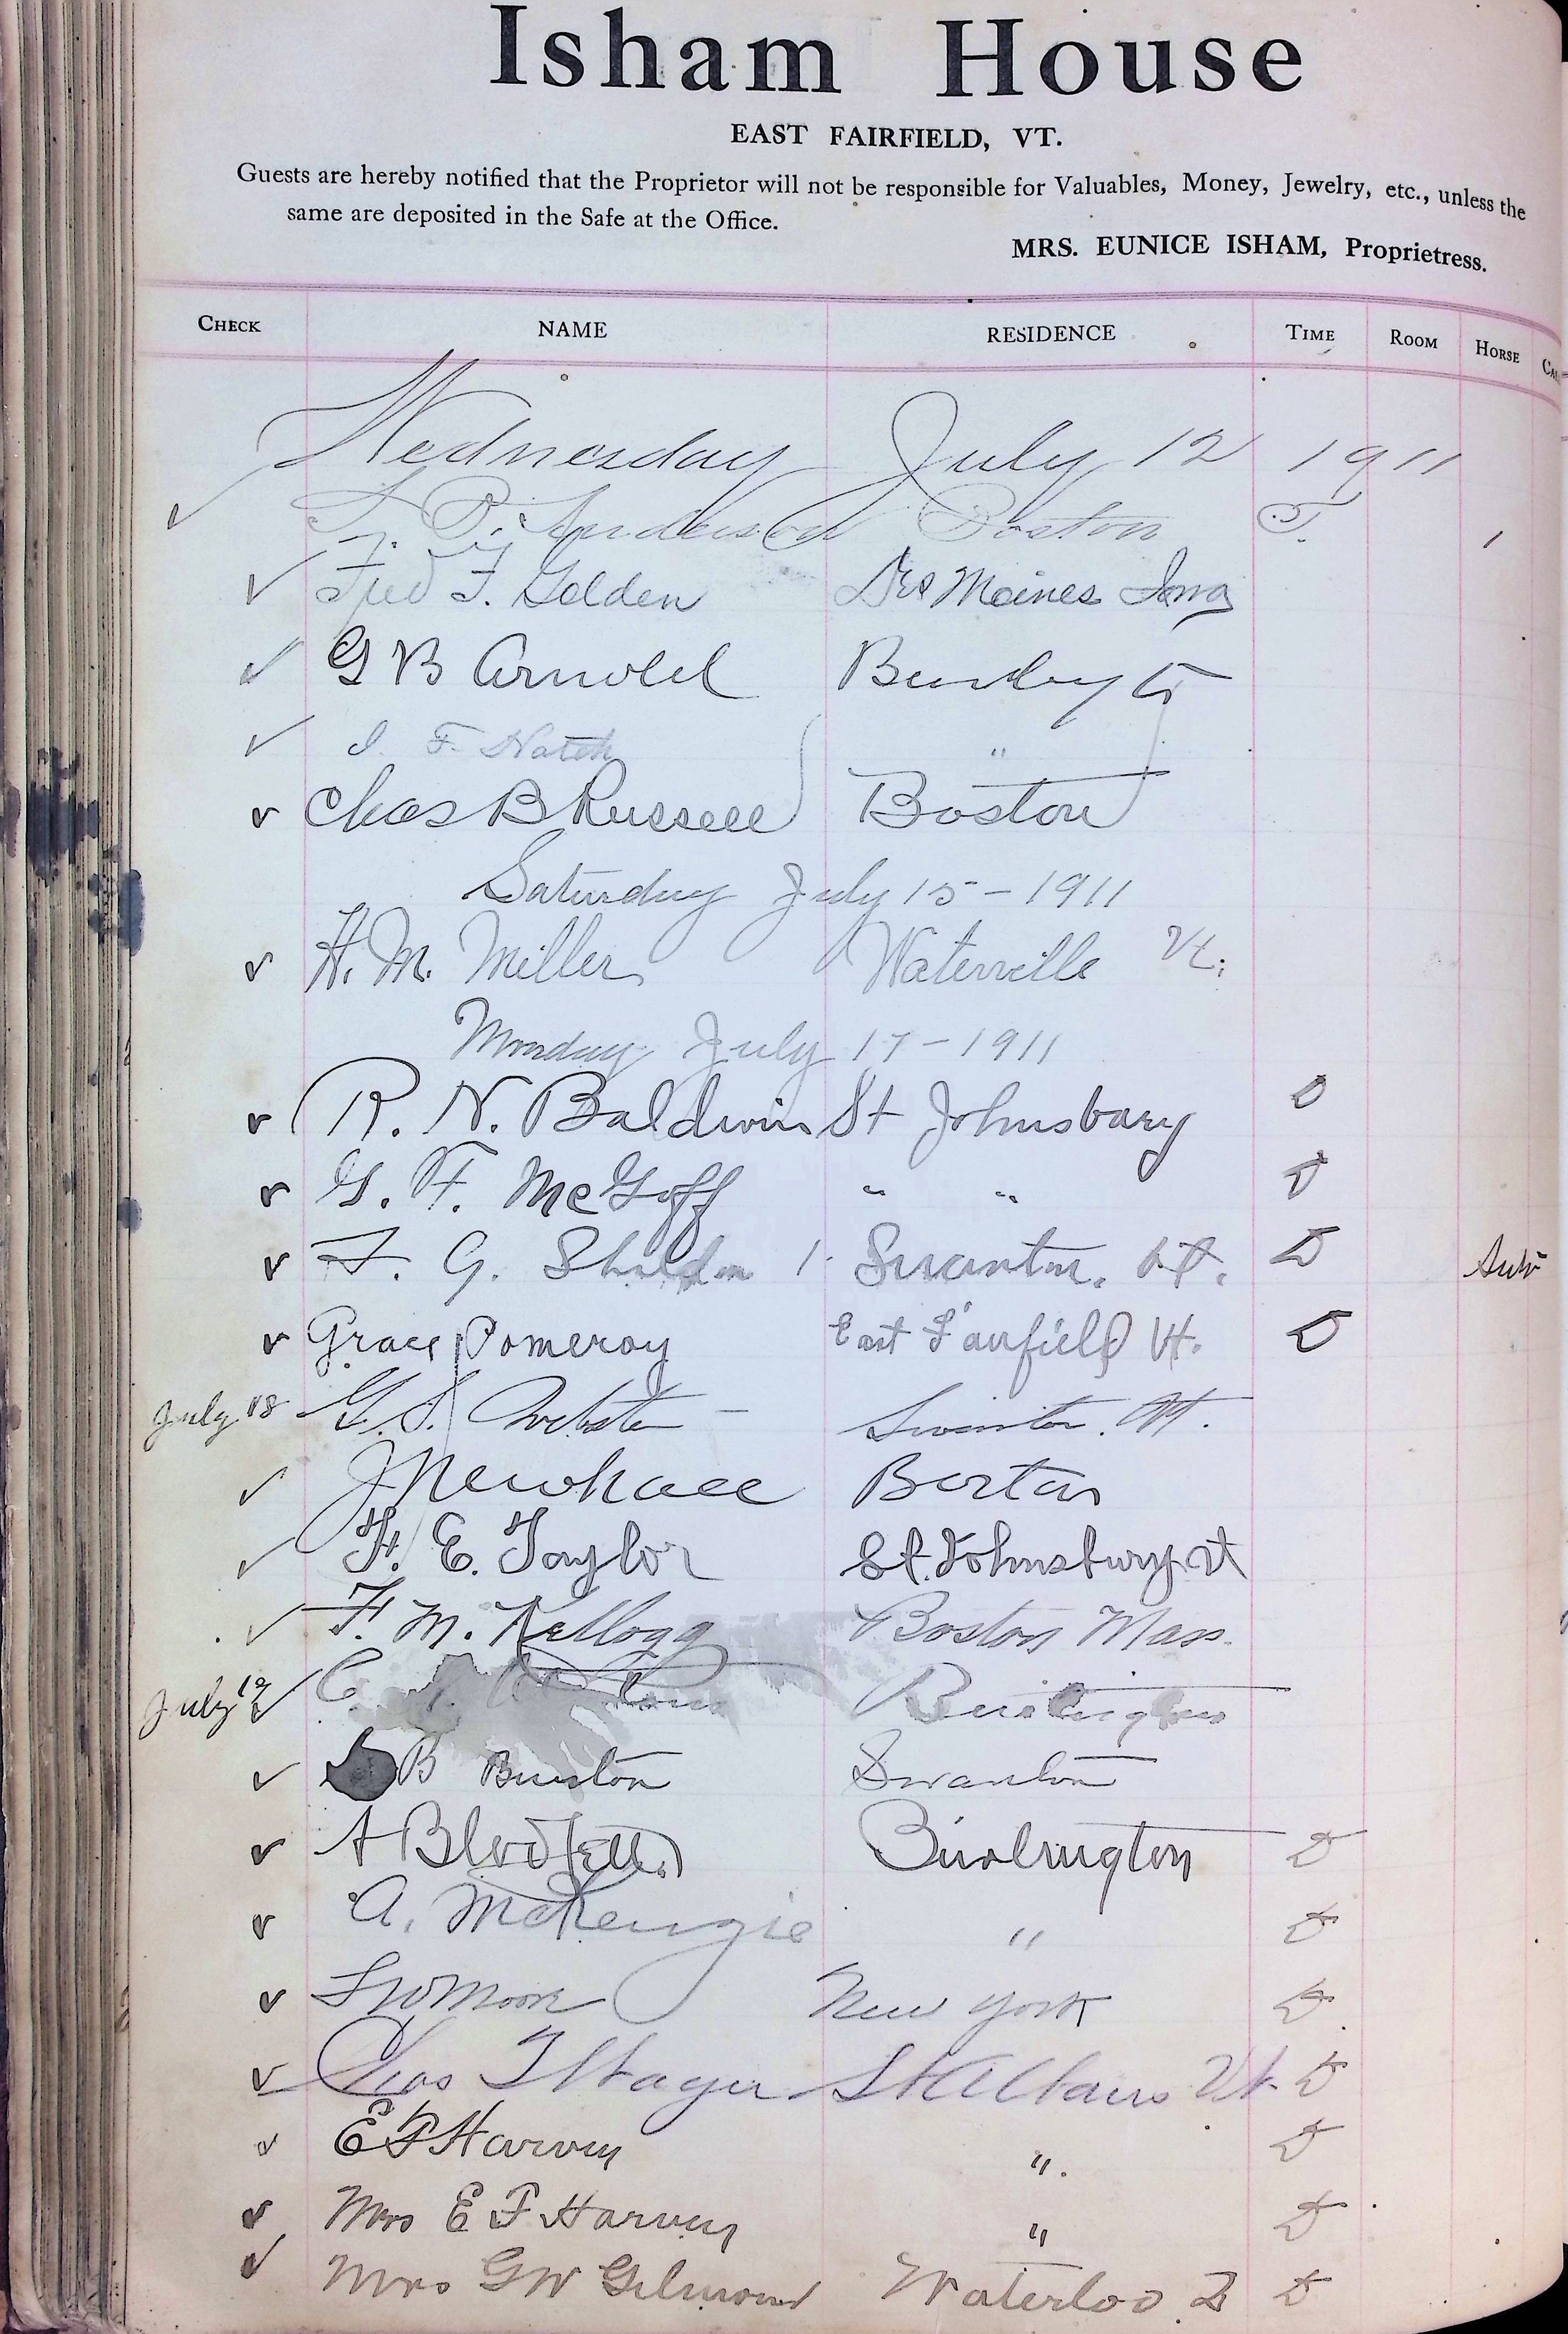 Isham House
EAST FAIRFIELD, VT.
Guests are hereby notified that the Proprietor will not be responsible for Valuables, Money, Jewelry, etc., unless the
same are deposited in the Safe at the Office.
MRS. EUNICE ISHAM, Proprietress.
CHECK NAME RESIDENCE TIME ROOM HORSE
Wednesday July 12 1911
P. Anderson Boston
Fred F. Golden Des Moines Iowa
G B Arnold
F.  "
Chas B Russell Boston
Saturday July 15 - 1911
H. M. Miller Waterville Vt.
Monday July 17 - 1911
R. N. Baldwin St Johnsbury D
G. F. McGoff " " D
F. G. Sheldon 1 Swanton, Vt. D Auto
Grace Pomeroy East Fairfield Vt. D
July 18 G. S. Webster Swanton, Vt.
J Newhall Boston
F. E. Taylor St. Johnsbury Vt
F. M. Kellogg Boston Mass.
July 19 C. Burlington
B Burton Swanton
A Blodgett Burlington D
A. McKenzie " D
Moore New York D
Chas Hager St Albans Vt. D
E F Harvey " D
Mrs E F Harvey " D
Mrs G W Waterloo D